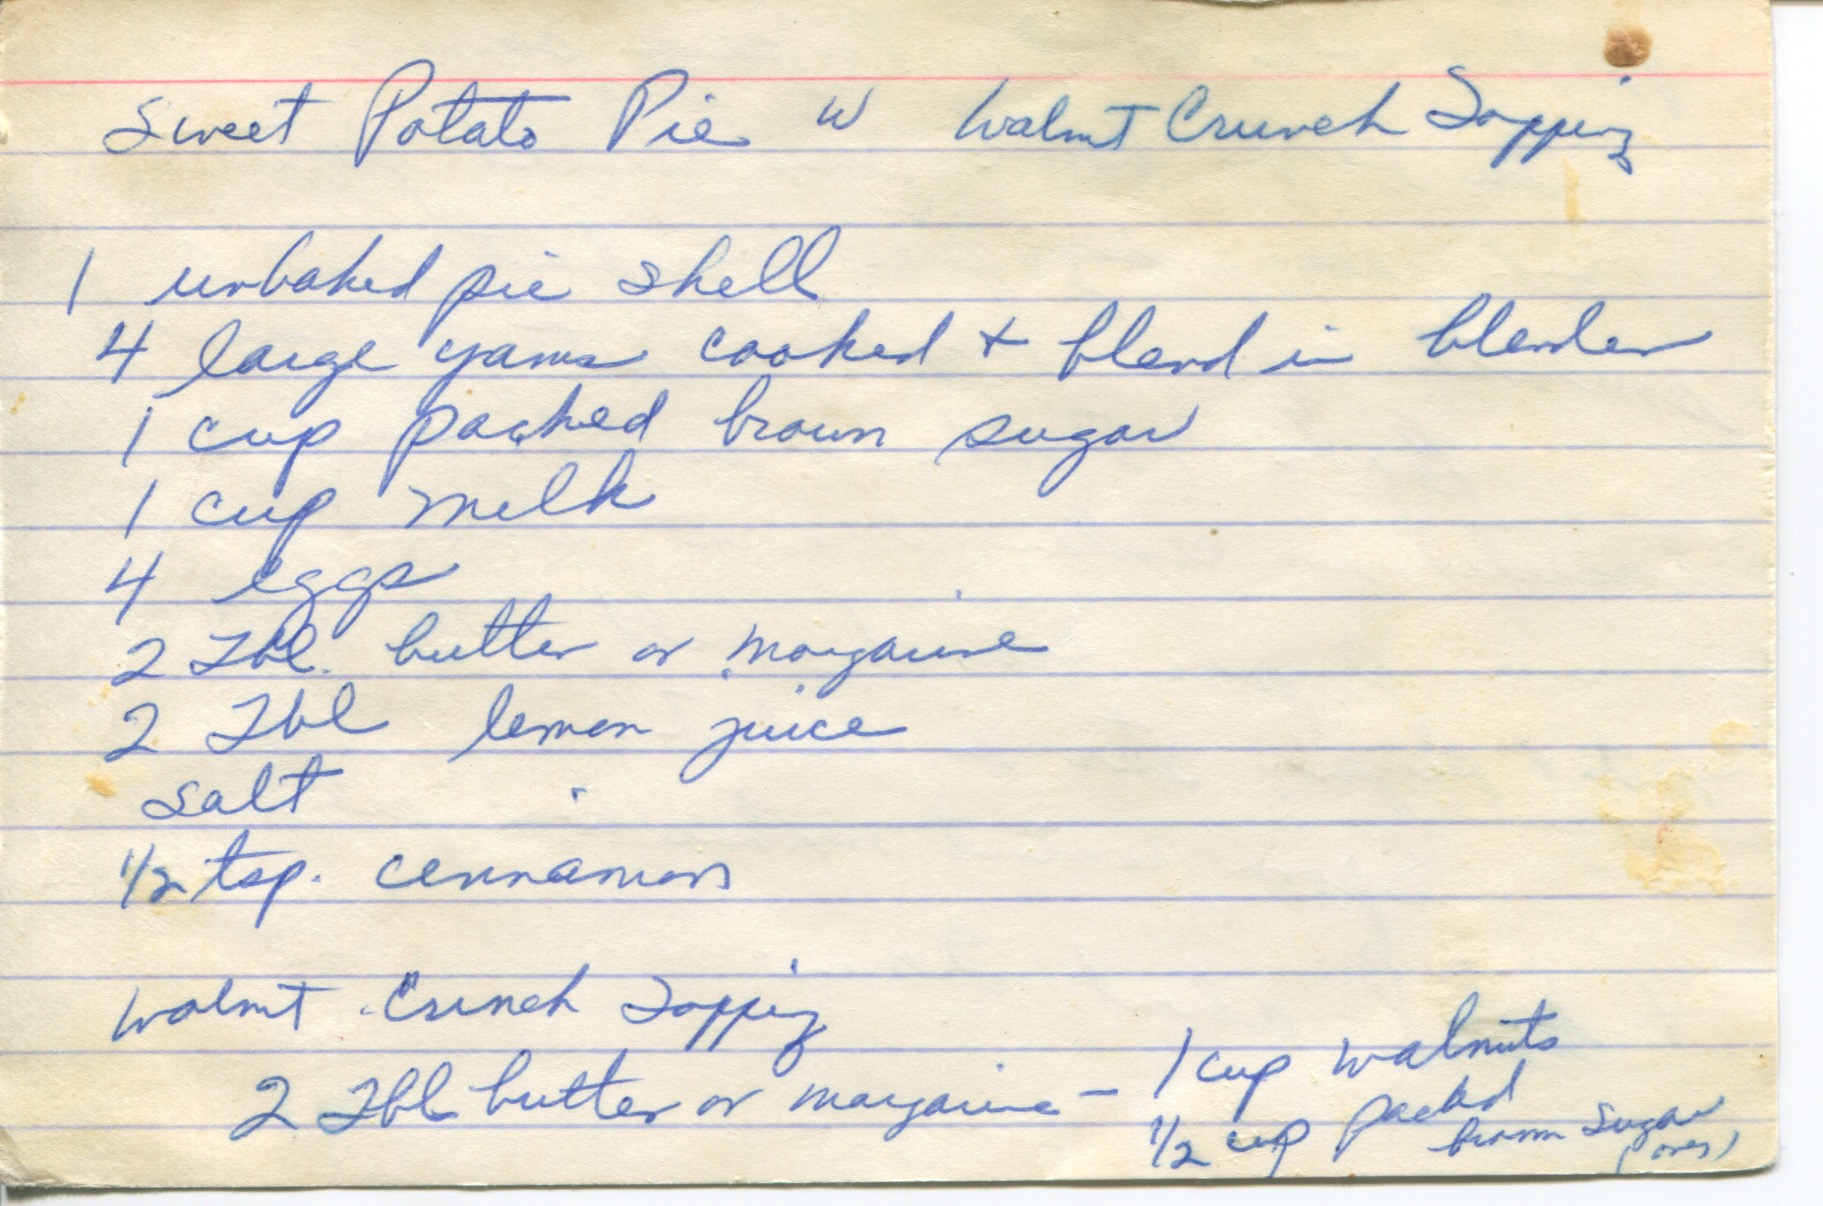 Sweet Potato Pie w Walnut Crunch Topping
1 unbaked pie shell
4 large yams cooked + blend in blender
1 cup packed brown sugar
1 cup milk
4 eggs
2 Tbl. butter or margarine
2 Tbl lemon juice
salt
1/2 tsp. cinnamon
Walnut Crunch Topping
2 Tbl butter or margarine - 1 cup walnuts
1/2 cup packed
brown sugar
(over)